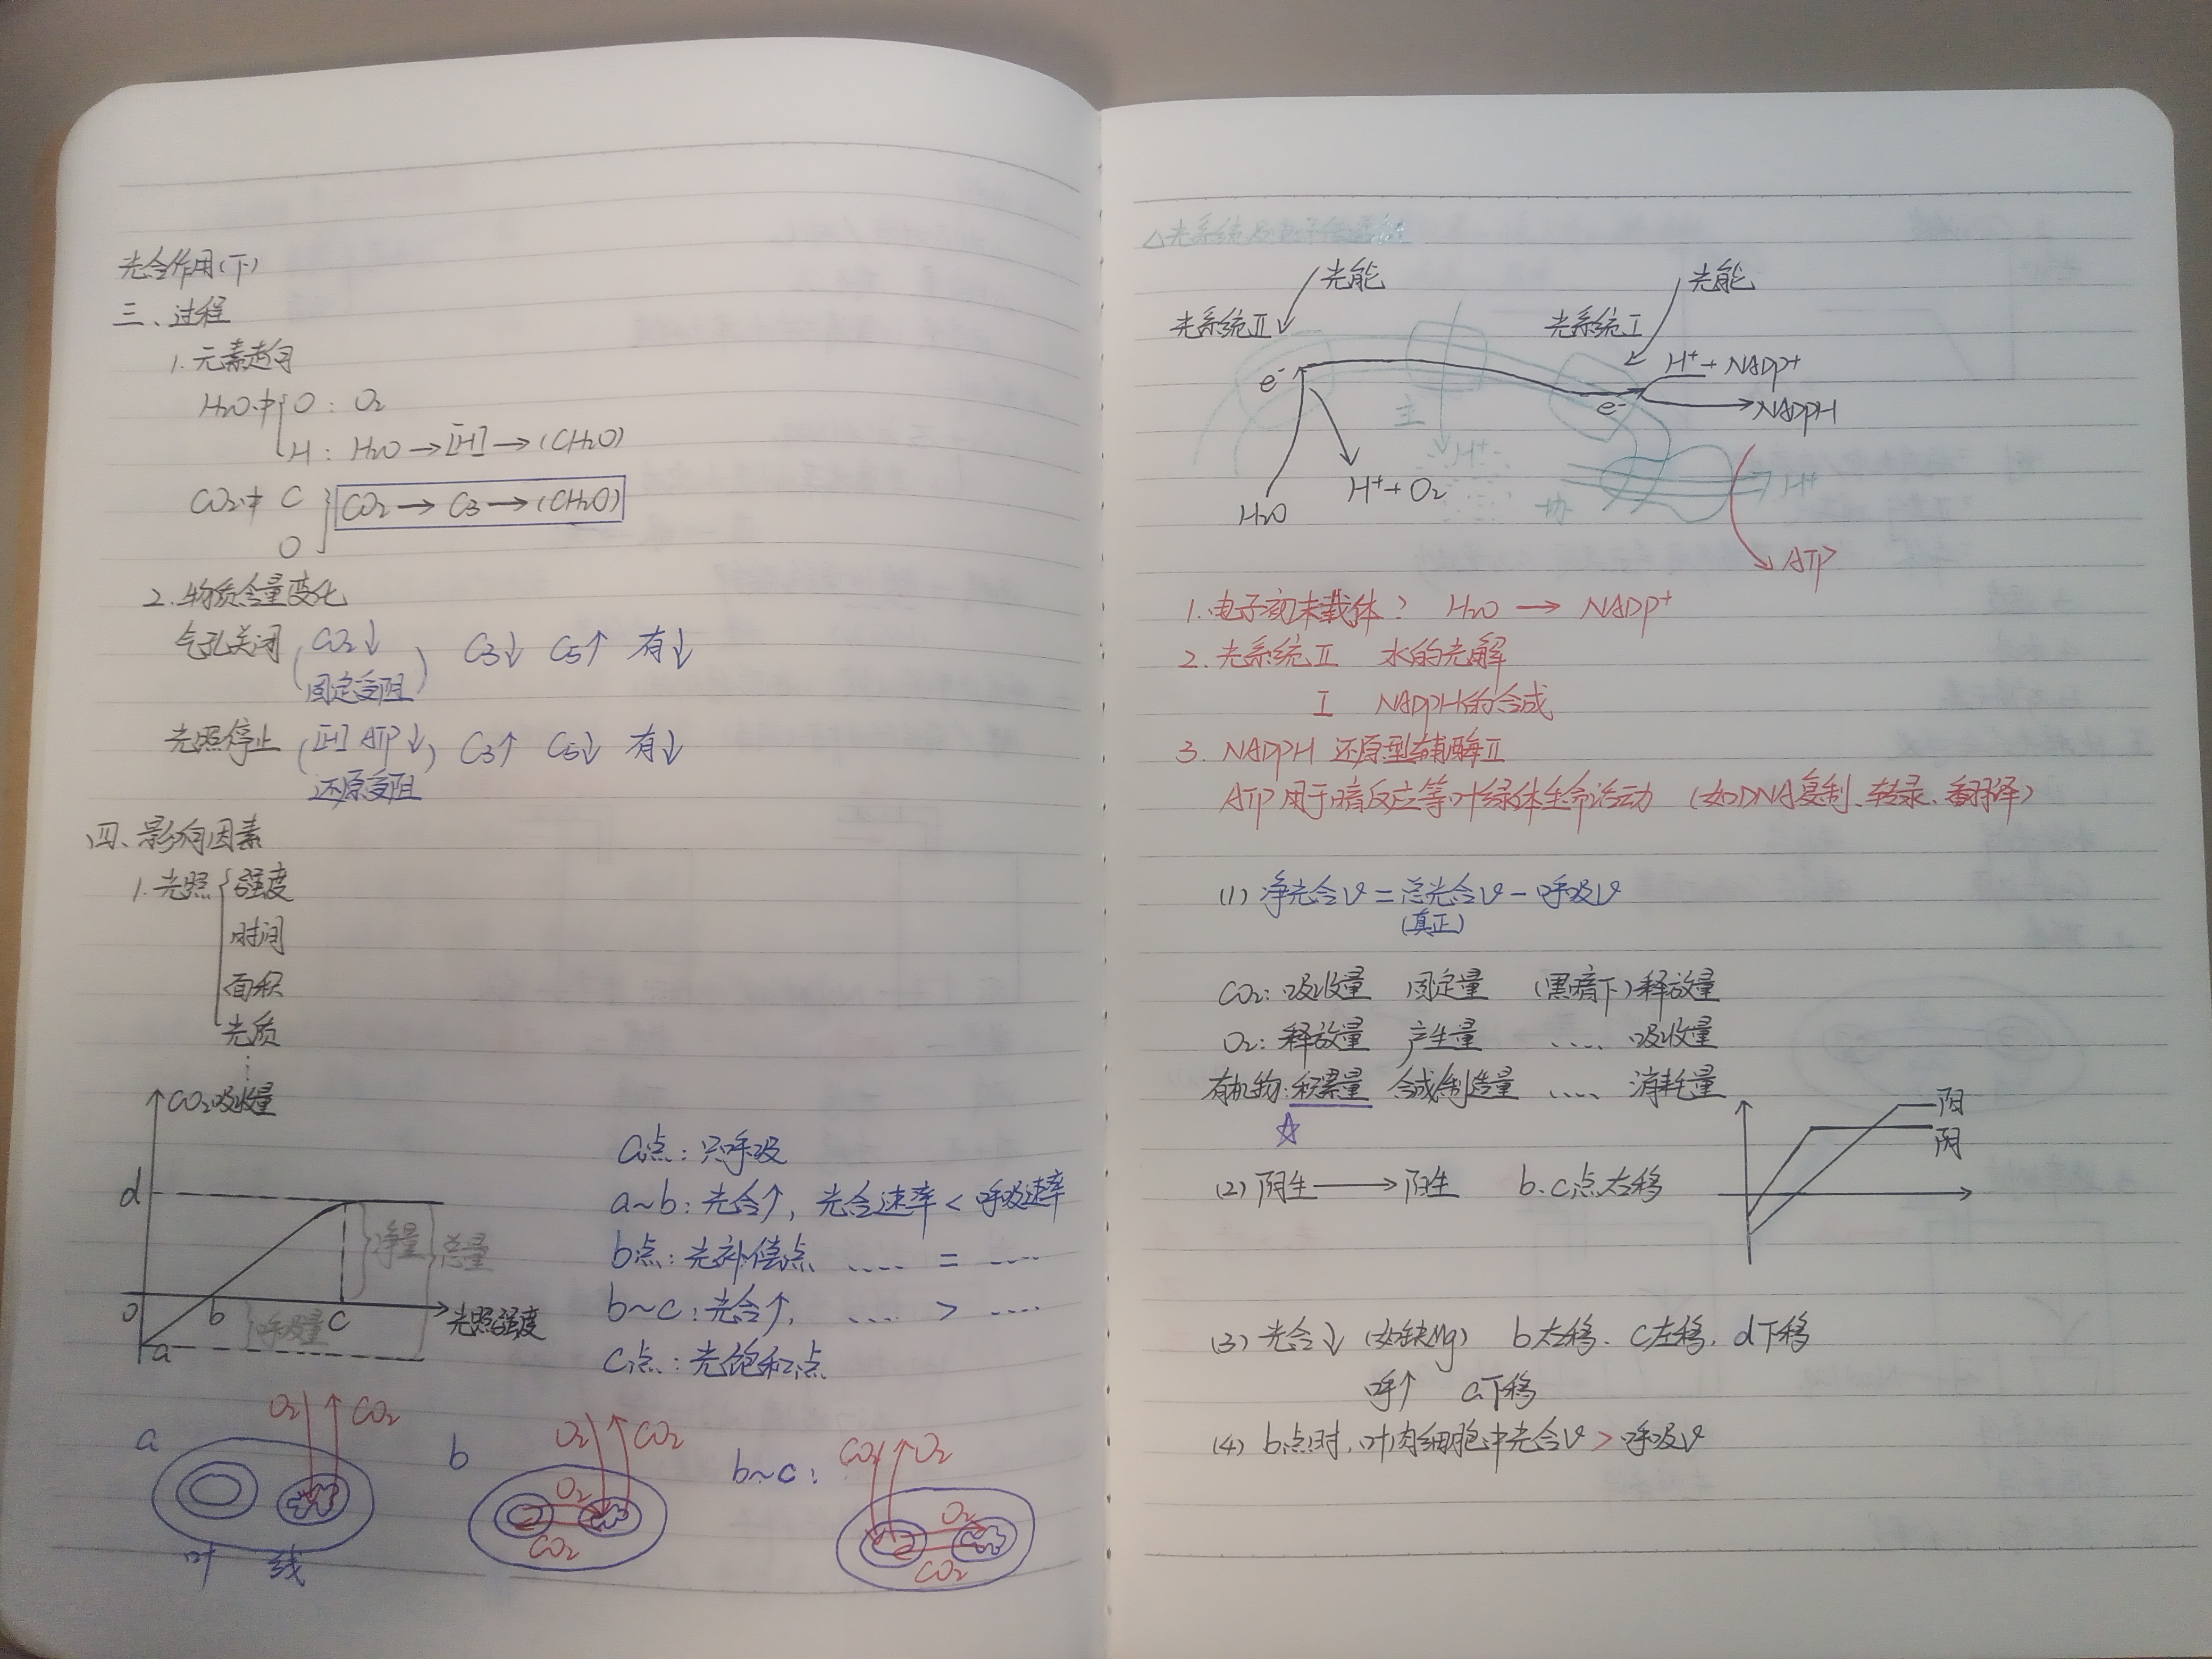 光合作用(下)
三、过程
1. 元素走向
H₂O中 O: O₂
H: H₂O → [H] → (CH₂O)
CO₂中 C
CO₂ → C₃ → (CH₂O)
O
2. 物质含量变化
气孔关闭 (CO₂↓ 固定受阻) C₃↓ C₅↑ 有↓
光照停止 ([H] ATP↓ 还原受阻) C₃↑ C₅↓ 有↓
四、影响因素
1. 光照 强度
时间
面积
光质
⋮
CO₂吸收量
d
净量 总量
O b c 光照强度
呼吸量
a
a点: 只呼吸
a~b: 光合↑, 光合速率 < 呼吸速率
b点: 光补偿点 ···· = ····
b~c: 光合↑, ···· > ····
c点: 光饱和点
a O₂ CO₂
叶 线
b O₂ CO₂
O₂
CO₂
b~c: CO₂ O₂
O₂
CO₂
△光系统及电子传递链
光能 光能
光系统Ⅱ 光系统Ⅰ
H⁺ + NADP⁺
e⁻ e⁻ NADPH
主
H⁺ H⁺
H₂O H⁺ + O₂ 协
ATP
1. 电子初末载体? H₂O → NADP⁺
2. 光系统Ⅱ 水的光解
Ⅰ NADPH的合成
3. NADPH 还原型辅酶Ⅱ
ATP 用于暗反应等叶绿体生命活动 (如DNA复制、转录、翻译)
(1) 净光合v = 总光合v - 呼吸v
(真正)
CO₂: 吸收量 固定量 (黑暗下)释放量
O₂: 释放量 产生量 ···· 吸收量
有机物: 积累量 合成/制造量 ···· 消耗量
☆
阳
阴
(2) 阴生 → 阳生 b.c点右移
(3) 光合↓ (如缺Mg) b右移. c左移. d下移
呼↑ a下移
(4) b点时, 叶肉细胞中光合v > 呼吸v